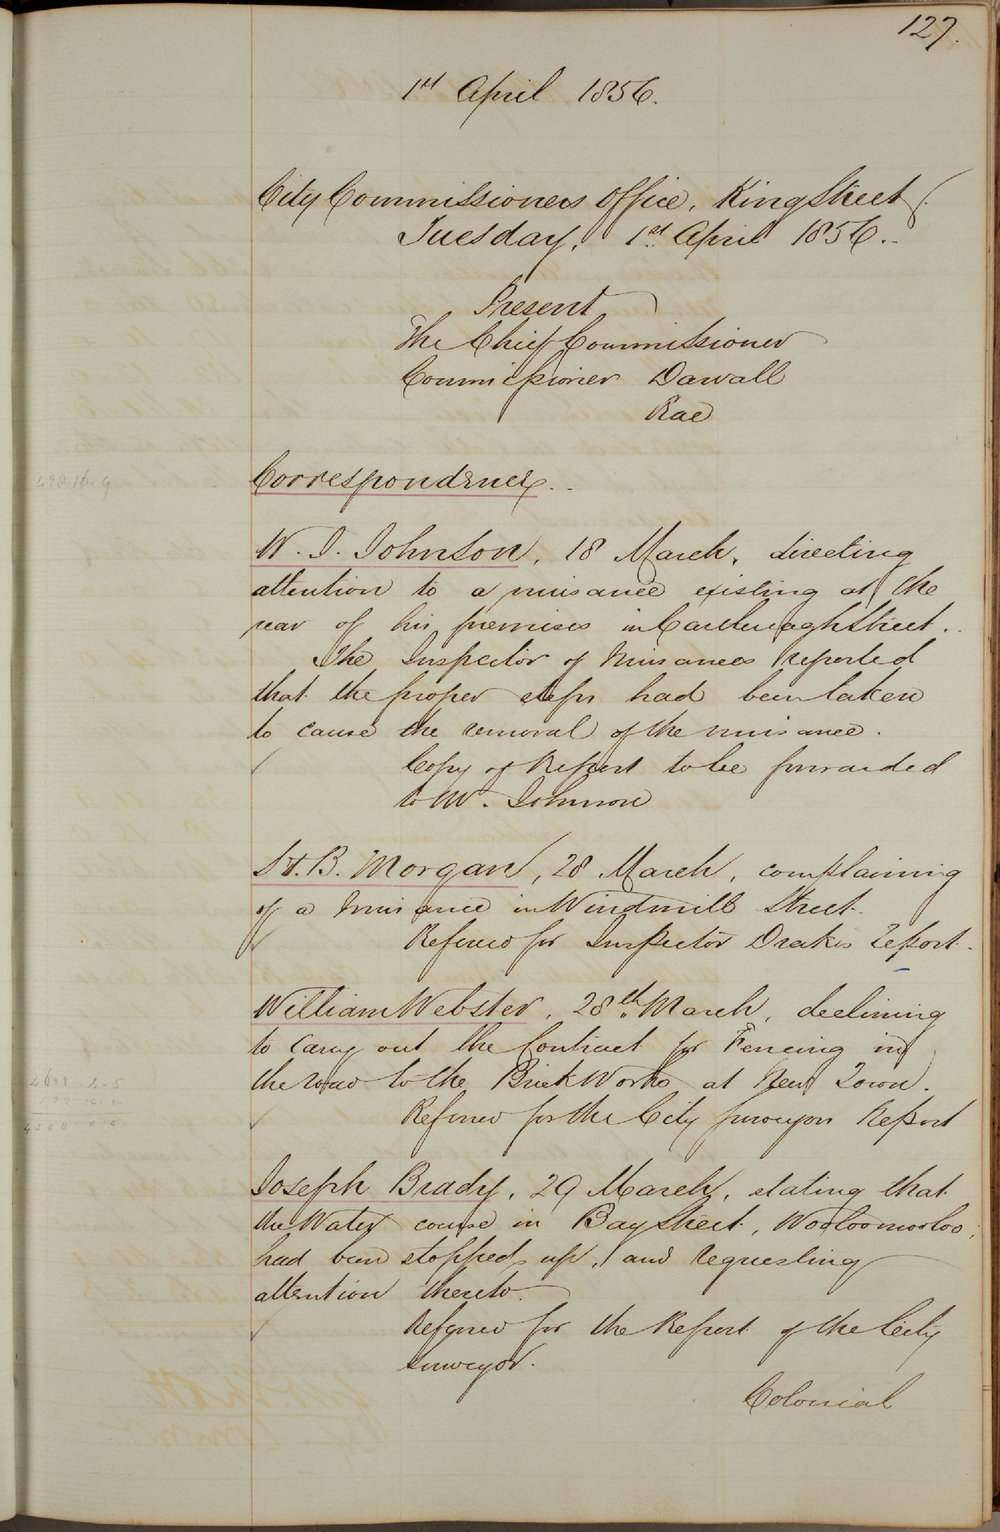 127.
1st April 1856.
City Commissioners Office, King Street
Tuesday, 1st April 1856..
Present
The Chief Commissioner
Commissioner Darvall
Rae
Correspondence..
W. I. Johnson, 18 March, directing
attention to a nuisance existing at the
rear of his premises in Castlereagh Street..
The Inspector of Nuisances reported
that the proper steps had been taken
to cause the removal of the nuisance.
Copy of Report to be forwarded
to Mr. Johnson
B. Morgan, 28 March, complaining
of a Nuisance in Windmill Street.
Referred for Inspector Drakes report.
William Webster, 28th March, declining
to carry out the Contract for Fencing in
the road to the Brick Works at New Town.
Referred for the City Surveyors Report
Joseph Brady, 29 March, stating that
the Water course in Bay Street, Wooloomooloo,
had been stopped up, and requesting
attention thereto.
Referred for the Report of the City
Surveyor.
Colonial